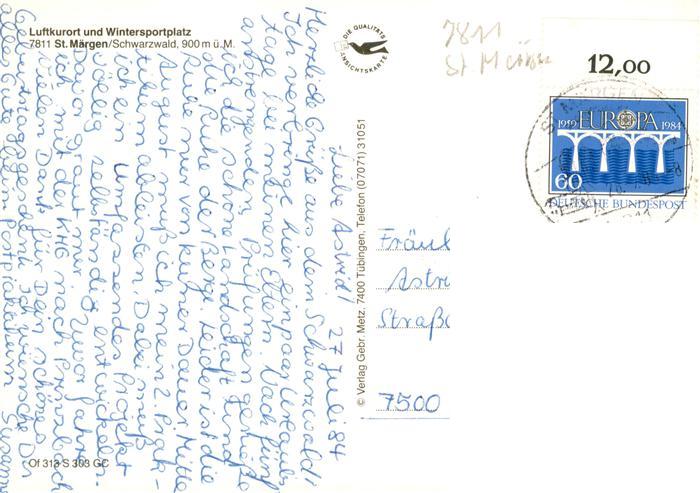 Luftkurort und Wintersportplatz
7811 St. Märgen/Schwarzwald, 900 m ü. M.
DIE QUALITÄTS
ANSICHTSKARTE
7811
St Märgen
12,00
1959 EUROPA 1984
60
DEUTSCHE BUNDESPOST
27 Juli 84
Liebe Astrid!
Herzliche Grüße aus dem Schwarzwald!
Ich verbringe hier ein paar Urlaubs
tage bei meinen Eltern. Nach fünf
anstrengenden Prüfungen genieße
ich die schöne Landschaft und
die Berge. Leider ist die
Ruhe nur von kurzer Dauer. Mitte
August muß ich mein 2. Prak-
tikum ableisten. Dabei muß
ich ein umfassendes Projekt
völlig selbständig entwickeln.
Davor graut mir. Zuvor fahre
ich mit der KHG nach
Vielen Dank für Dein schönes
Geburtstagsgeschenk. Ich wünsche Dir
alles Gute Susanne
© Verlag Gebr. Metz, 7400 Tübingen, Telefon (07071) 31051
Fräul
Astri
Straße
7500
Of 313 S 303 GC